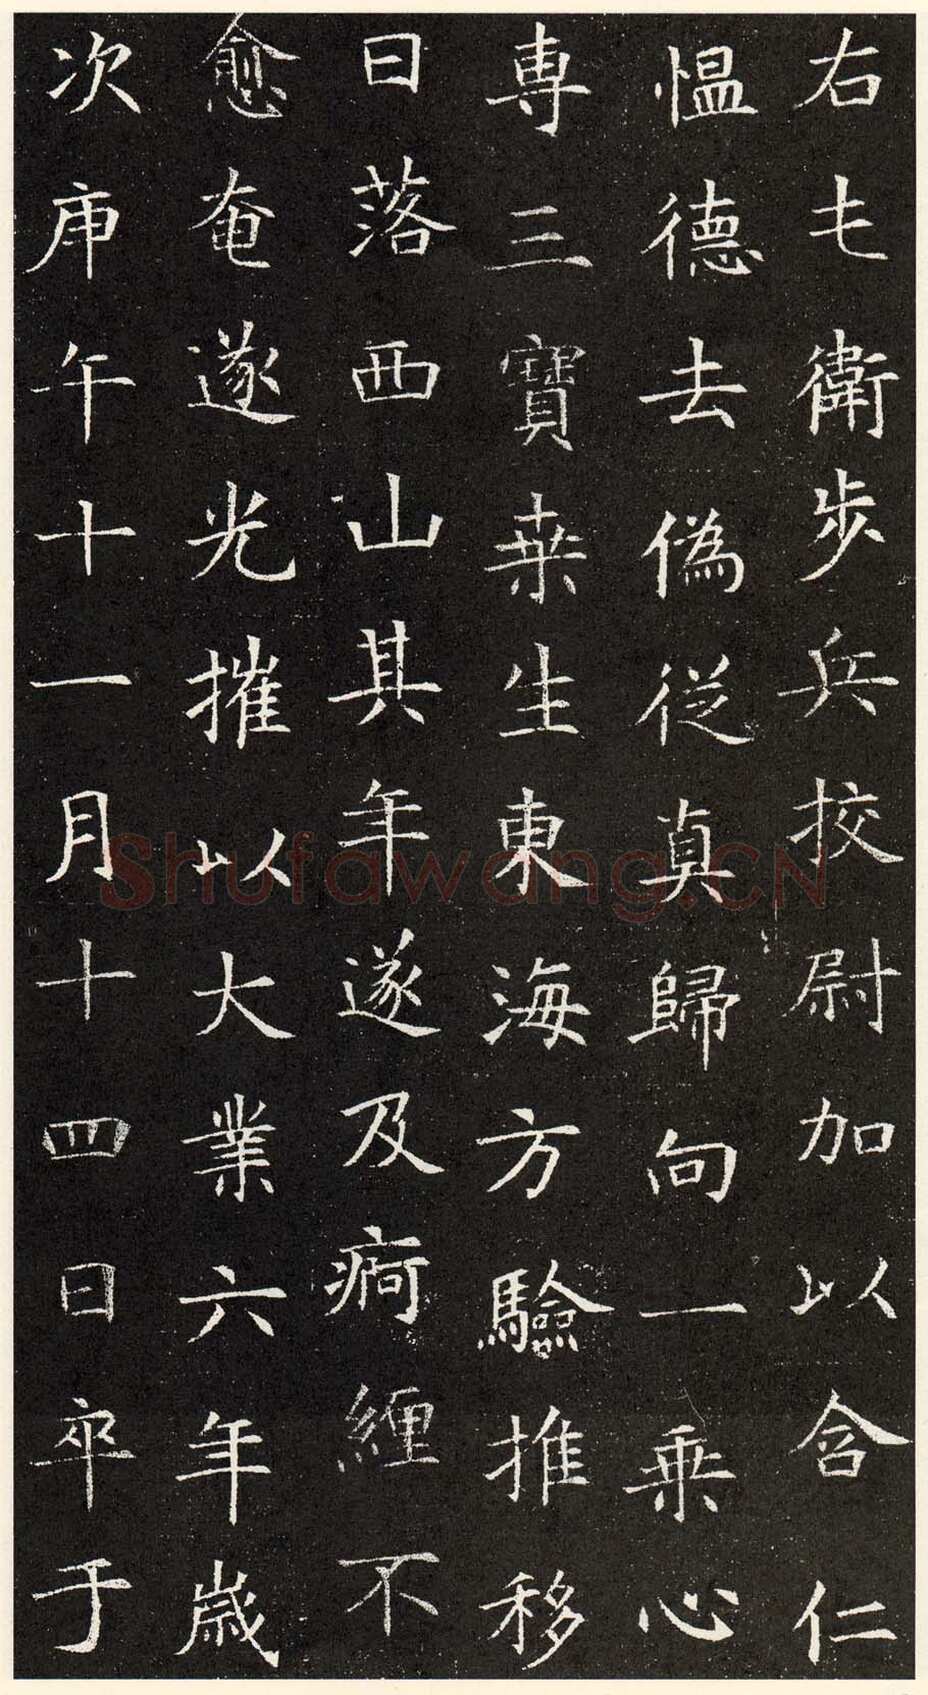 右屯衛步兵挍尉加以含仁
愠德去偽從真歸向一乘心
專三寶桒生東海方驗推移
日落西山其年遂及痾纏不
愈奄遂光摧以大業六年歲
次庚午十一月十四日卒于
Shufawang.CN